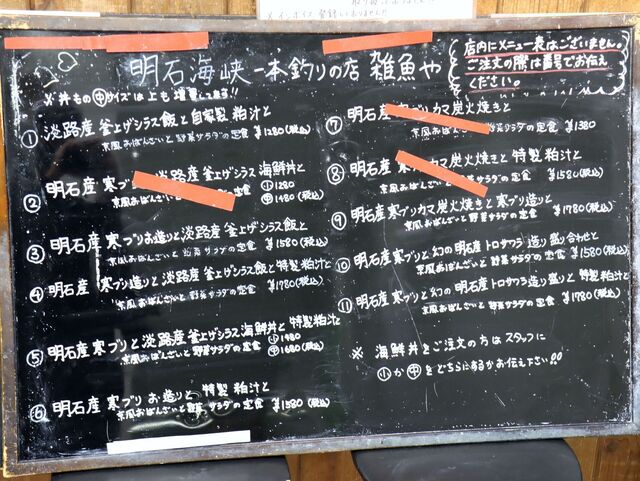 ※インボイス登録しておりません!!
明石海峡一本釣りの店 雑魚や
店内にメニュー表はございません。
ご注文の際は番号でお伝え
ください。
※丼もの㊥サイズは上も増量して〼!!
① 淡路産 釜上げシラス飯と自家製粕汁と
京風おばんざいと野菜サラダの定食 ¥1280(税込)
② 明石産 寒ブリ 淡路産 釜上げシラス 海鮮丼と
京風おばんざいと 定食 ㊥1480(税込)
小1280
③ 明石産 寒ブリお造りと淡路産 釜上げシラス飯と
京風おばんざいと野菜サラダの定食 ¥1580(税込)
④ 明石産 寒ブリ造りと淡路産 釜上げシラス飯と特製粕汁と
京風おばんざいと野菜サラダの定食 ¥1780(税込)
⑤ 明石産 寒ブリと淡路産釜上げシラス海鮮丼と 特製粕汁と
小1480
京風おばんざいと野菜サラダの定食 ㊥1680(税込)
⑥ 明石産 寒ブリ お造りと 特製 粕汁と
京風おばんざいと野菜サラダの定食 ¥1580(税込)
⑦ 明石産 寒ブリカマ炭火焼きと
京風おばんざいと野菜サラダの定食 ¥1380
⑧ 明石産 寒ブリカマ炭火焼きと 特製粕汁と
京風おばんざいと サラダの定食 ¥1580(税込)
⑨ 明石産 寒ブリカマ炭火焼きと寒ブリ造りと
京風おばんざいと野菜サラダの定食 ¥1780(税込)
⑩ 明石産 寒ブリと幻の明石産トロサワラ造り盛り合わせと
京風おばんざいと野菜サラダの定食 ¥1580(税込)
⑪ 明石産 寒ブリと幻の明石産トロサワラ造り盛りと 特製粕汁と
京風おばんざいと野菜サラダの定食 ¥1780(税込)
※ 海鮮丼をご注文の方はスタッフに
小か㊥をどちらにするかお伝え下さい!!